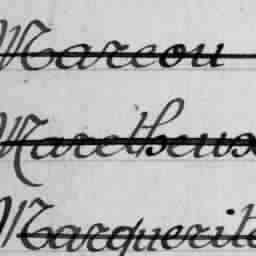 Marcou
Maretheux
Marguerite